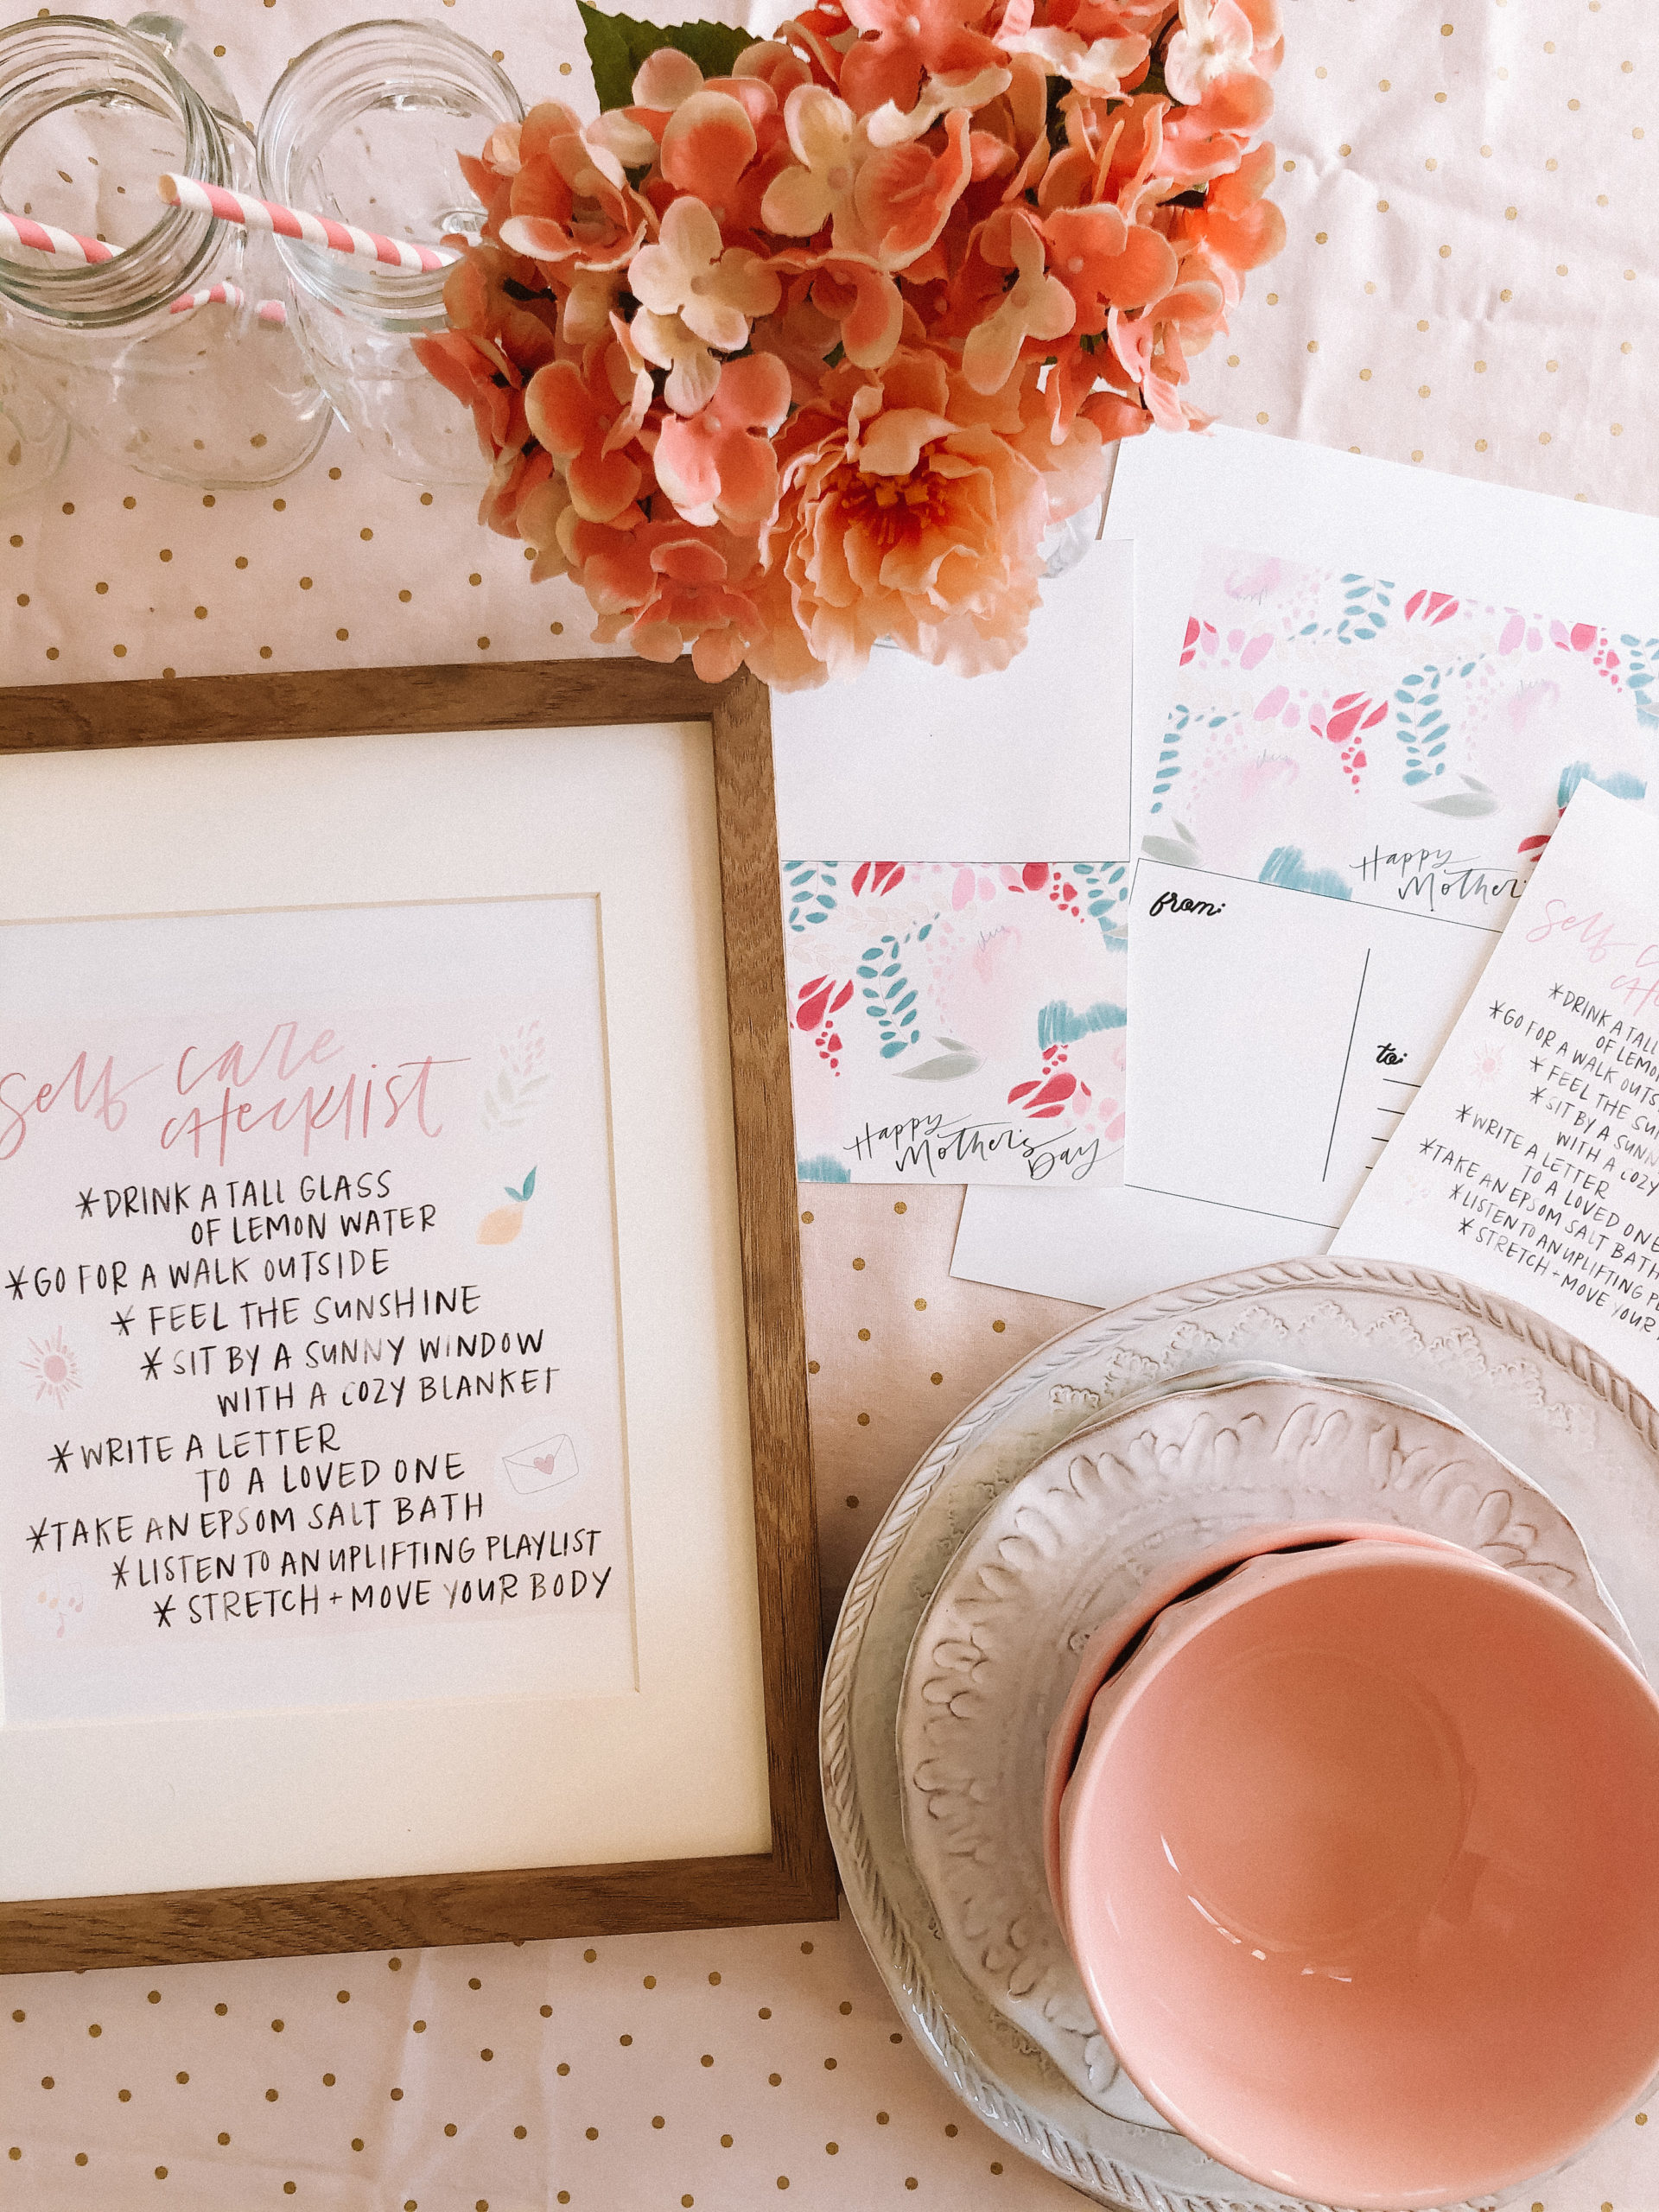 self care
checklist
*DRINK A TALL GLASS
OF LEMON WATER
*GO FOR A WALK OUTSIDE
* FEEL THE SUNSHINE
*SIT BY A SUNNY WINDOW
WITH A COZY BLANKET
*WRITE A LETTER
TO A LOVED ONE
*TAKE AN EPSOM SALT BATH
*LISTEN TO AN UPLIFTING PLAYLIST
* STRETCH + MOVE YOUR BODY
Happy
Mother's
Day
Happy
from:
to:
self
*DRINK A TALL
OF
*GO FOR A WALK
* FEEL THE
*SIT BY A
WITH A COZY
*WRITE A LETTER
TO A LOVED ONE
*TAKE AN EPSOM SALT BATH
*LISTEN TO AN UPLIFTING
* STRETCH + MOVE YOUR